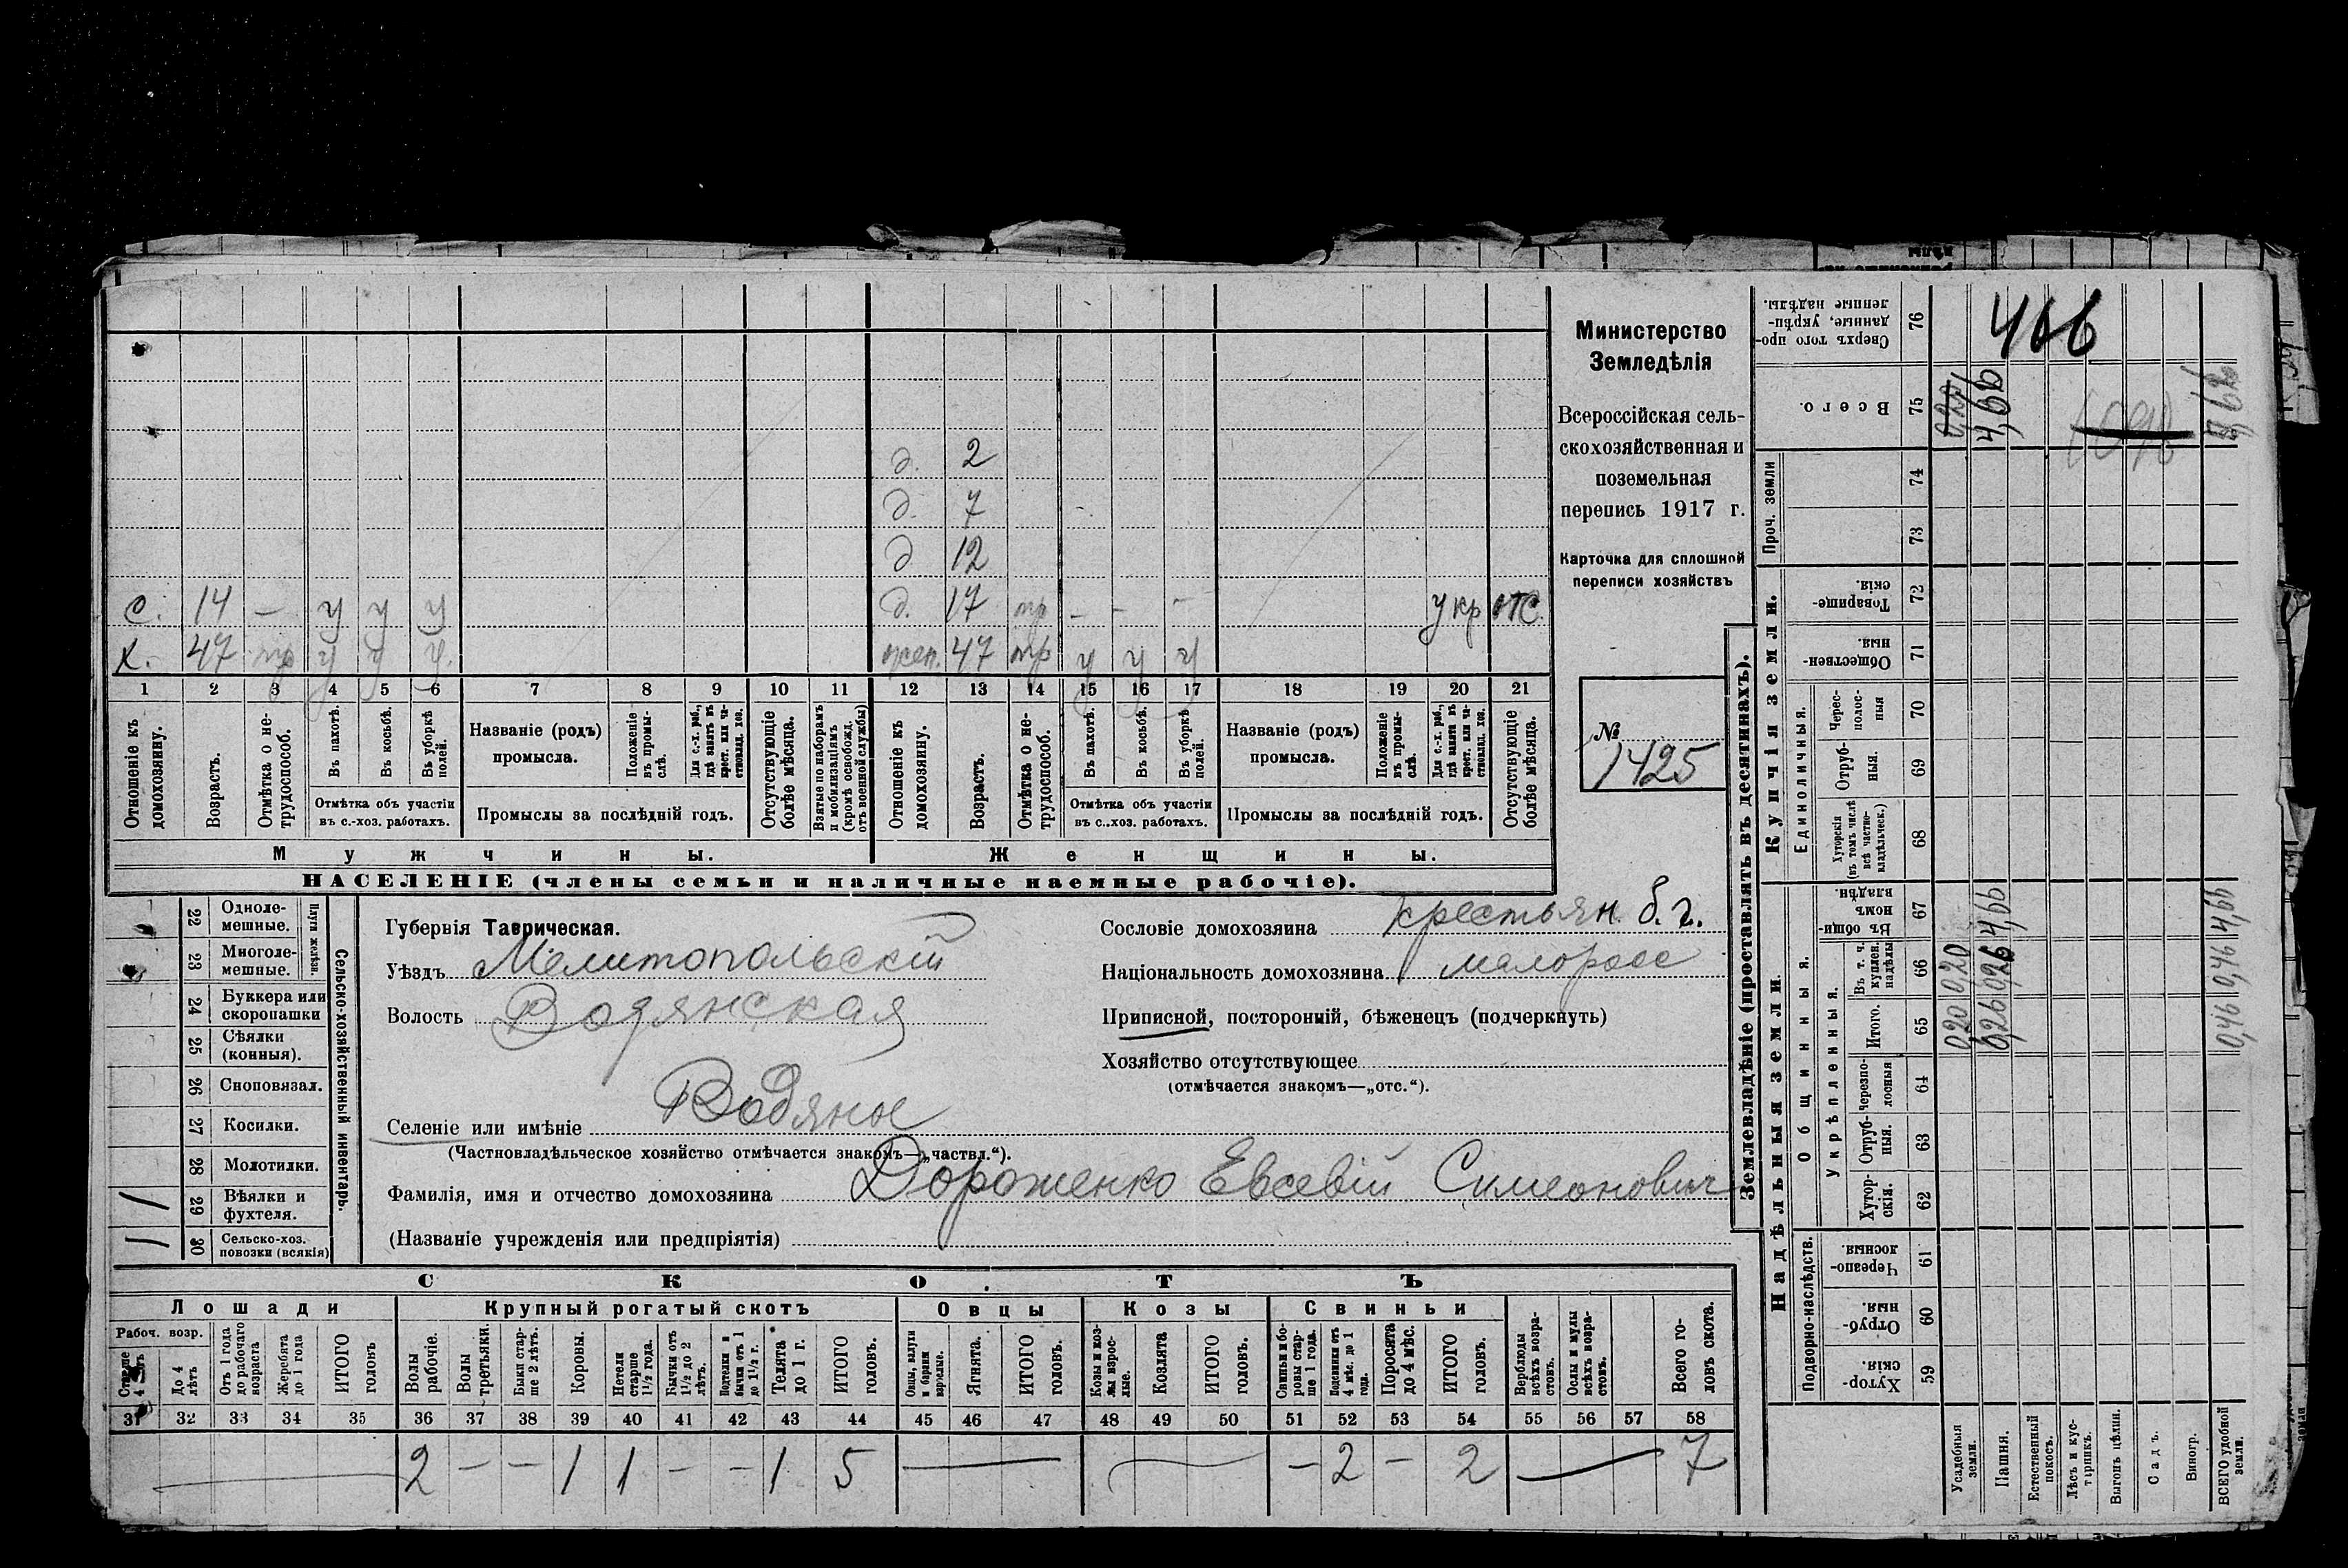 д. 2
д. 7
д 12
с. 14 — у у у д. 17 пр - - - укр отс.
х. 47 пр у у у. жен. 47 пр у у у
1 2 3 4 5 6 7 8 9 10 11 12 13 14 15 16 17 18 19 20 21
Отношеніе къ домохозяину.
Возрастъ.
Отмѣтка о не-трудоспособ.
Въ пахотѣ.
Въ косьбѣ.
Въ уборкѣ полей.
Отмѣтка объ участіи въ с.-хоз. работахъ.
Названіе (родъ) промысла.
Положеніе въ промы-слѣ.
Для с.-х. раб., гдѣ занятъ въ крест. или ча-стновлад. хоз.
Промыслы за послѣдній годъ.
Отсутствующіе болѣе мѣсяца.
Взятые по наборамъ и мобилизаціямъ (кромѣ освобожд. отъ военной службы)
Отношеніе къ домохозяину.
Возрастъ.
Отмѣтка о не-трудоспособ.
Въ пахотѣ.
Въ косьбѣ.
Въ уборкѣ полей.
Отмѣтка объ участіи въ с..хоз. работахъ.
Названіе (родъ) промысла.
Положеніе въ промы-слѣ.
Для с.-х. раб., гдѣ занята въ крест. или ча-стновлад. хоз.
Промыслы за послѣдній годъ.
Отсутствующіе болѣе мѣсяца.
Мужчины. Женщины.
НАСЕЛЕНІЕ (члены семьи и наличные наемные рабочіе).
Министерство
Земледѣлія
Всероссійская сель-
скохозяйственная и
поземельная
перепись 1917 г.
Карточка для сплошной
переписи хозяйствъ
№
1425
Сельско-хозяйственный инвентарь.
Плуги желѣзн.
22 Одноле-мешные.
23 Многоле-мешные.
24 Буккера или скоропашки
25 Сѣялки (конныя).
26 Сноповязал.
27 Косилки.
28 Молотилки.
1 29 Вѣялки и фухтеля.
1 30 Сельско-хоз. повозки (всякія)
Губернія Таврическая.
Уѣздъ Мелитопольскій
Волость Водянская
Селеніе или имѣніе Водяное
(Частновладѣльческое хозяйство отмѣчается знакомъ—„частвл.“).
Фамилія, имя и отчество домохозяина Дороженко Евсевій Симеонович
(Названіе учрежденія или предпріятія)
Сословіе домохозяина крестьян. б. г.
Національность домохозяина малоросс
Приписной, посторонній, бѣженецъ (подчеркнуть)
Хозяйство отсутствующее
(отмѣчается знакомъ—„отс.“).
СКОТЪ
Лошади Крупный рогатый скотъ Овцы Козы Свиньи
Рабоч. возр.
Старше 4 лѣтъ
До 4 лѣтъ
Отъ 1 года до рабочаго возраста
Жеребята до 1 года
ИТОГО головъ
Волы рабочіе.
Волы третьяки.
Быки стар-ше 2 лѣтъ.
Коровы.
Нетели старше 1½ года.
Бычки отъ 1½ до 2 лѣтъ.
Подтелки и бычки отъ 1 до 1½ г.
Телята до 1 г.
ИТОГО головъ.
Овцы, валухи и бараны взрослые.
Ягнята.
ИТОГО головъ.
Козы и коз-лы взрос-лые.
Козлята
ИТОГО головъ.
Свиньи и бо-ровы стар-ше 1 года.
Подсвинки отъ 4 мѣс. до 1 года.
Поросята до 4 мѣс.
ИТОГО головъ.
Верблюды всѣхъ возра-стовъ.
Ослы и мулы всѣхъ возра-стовъ.
Всего го-ловъ скота.
31 32 33 34 35 36 37 38 39 40 41 42 43 44 45 46 47 48 49 50 51 52 53 54 55 56 57 58
— 2 — — 1 1 — — 1 5 — — — 2 — 2 — 7
Землевладѣніе (проставлять въ десятинахъ).
Надѣльныя земли.
Купчія земли.
Проч. земли
Подворно-наслѣдств.
Общинныя.
Укрѣпленныя.
Единоличныя.
Хутор-скія. 59
Отруб-ныя 60
Черезпо-лосныя. 61
Хутор-скія. 62
Отруб-ныя. 63
Черезпо-лосныя 64
Итого. 65
Въ т. ч. куплен. надѣлы 66
Въ общи-номъ владѣн. 67
Хуторскія (въ томъ числѣ всѣ частно-владѣльческ.) 68
Отруб-ныя. 69
Черес-полос-ныя 70
Обществен-ныя 71
Товарище-скія. 72
73
74
Всего. 75
Сверхъ того про-данные, укрѣп-ленные надѣлы. 76
Усадебныя земли. 0,20 0,20
Пашня. 0,26 0,26 4,66 4,66
Естественный покосъ.
Лѣсъ и кус-тарникъ.
Выгонъ цѣлин.
Садъ.
Виногр.
ВСЕГО удобной земли. 0,46 0,46 4,66
466